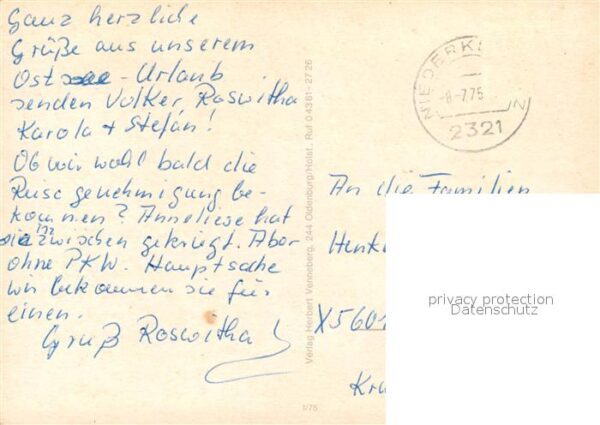 Ganz herzliche
Grüße aus unserem
Ostsee-Urlaub
senden Volker, Roswitha
Karola + Stefan!
Ob wir wohl bald die
genehmigung be-
kommen? Anneliese hat
sie inzwischen gekriegt. Aber
ohne PKW. Hauptsache
wir bekommen sie für
einen.
Gruß Roswitha
Verlag Herbert Venneberg, 244 Oldenburg/Holst. Ruf 04361-2726
1/75
NIEDERK N
-8-7.75
2321
An die Familien
Henk
X5601
Kr
privacy protection
Datenschutz